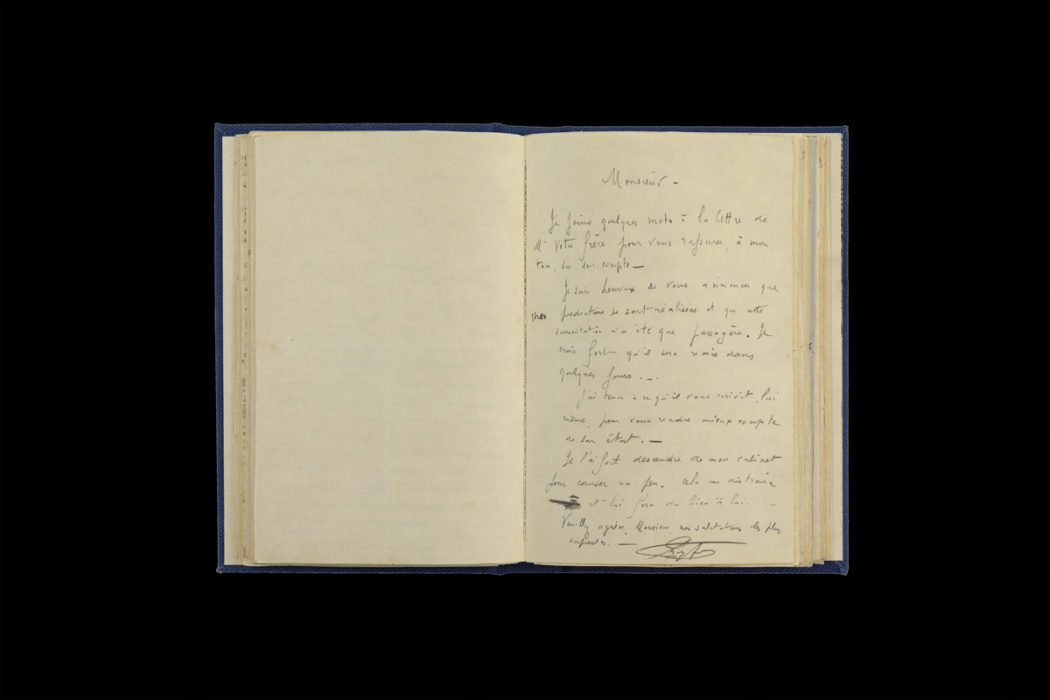 Monsieur –
Je joins quelques mots à la lettre de
Mr Votre frère pour vous rassurer, à mon
tour, sur son compte —
Je suis heureux de vous annoncer que
mes prédictions se sont réalisées et que cette
surexcitation n'a été que passagère. Je
crois fort qu'il sera remis dans
quelques jours . —.
J'ai tenu à ce qu'il vous écrivit, lui
même, pour vous rendre mieux compte
de son état . —
Je l'ai fait descendre de mon cabinet
pour causer un peu. Cela me distraira
et lui fera du bien à lui. —
Veuillez agréer, Monsieur mes salutations les plus
empressées. —
Rey